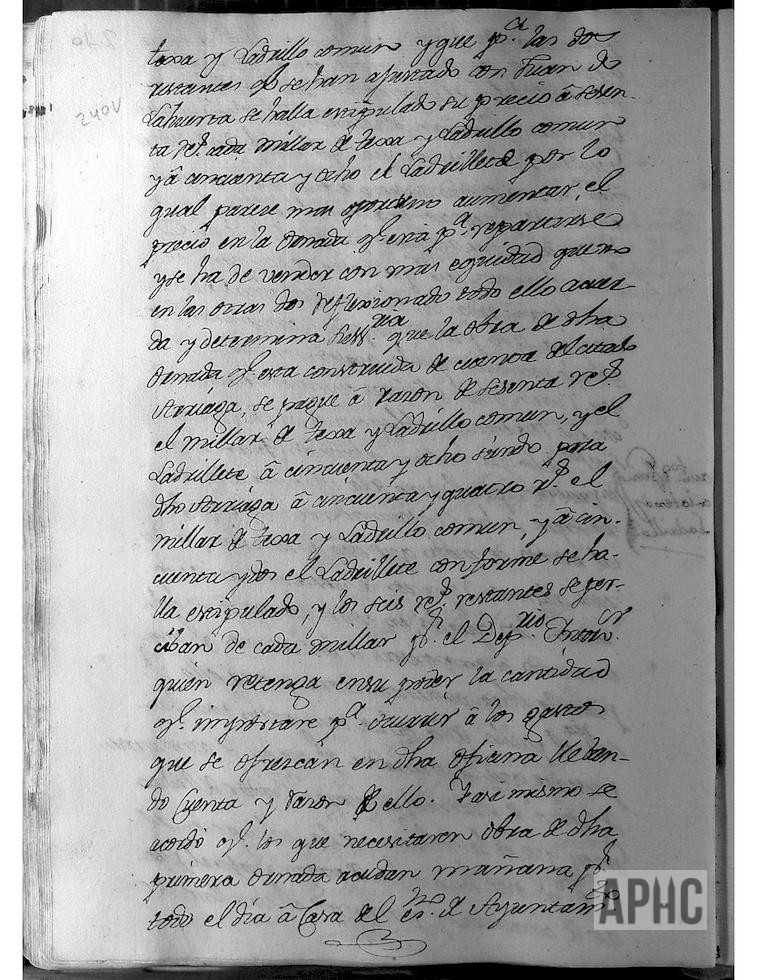 240v
texa y Ladrillo comun y que p.a las dos
restantes q.e se han ajustado con Juan de
Lahuerta se halla estipulado su precio â sesen-
ta r.s cada millar de texa y Ladrillo comun
y â cincuenta y ocho el Ladrillete por lo
qual parece mas oportuno aumentar el
precio en la ornada q.e està p.a repartirse
y se ha de vender con mas equidad que no
en las otras dos reflexionado todo ello acuer-
da y determina que la obra de dha
ornada q.e esta construida de cuenta del citado
Arriaga, se pague â razon de sesenta r.s
el millar de texa y Ladrillo comun, y el
Ladrillete â cincuenta y ocho siendo para
dho Arriaga â cincuenta y quatro r.s el
millar de texa y Ladrillo comun, y â cin-
cuenta y dos el Ladrillete conforme se ha-
lla estipulado, y los seis r.s restantes se per-
ciban de cada millar p.r el Dep.rio
quien retenga en su poder la cantidad
q.e importare p.a ocurrir â los gastos
que se ofrezcan en dha oficina lleban-
do Cuenta y razon de ello. Y asi mismo se
acordò q.e los que necesitaren obra de dha
primera ornada acudan mañana p.r
todo el dia â Casa del es.no de Ayuntam.to
APHC